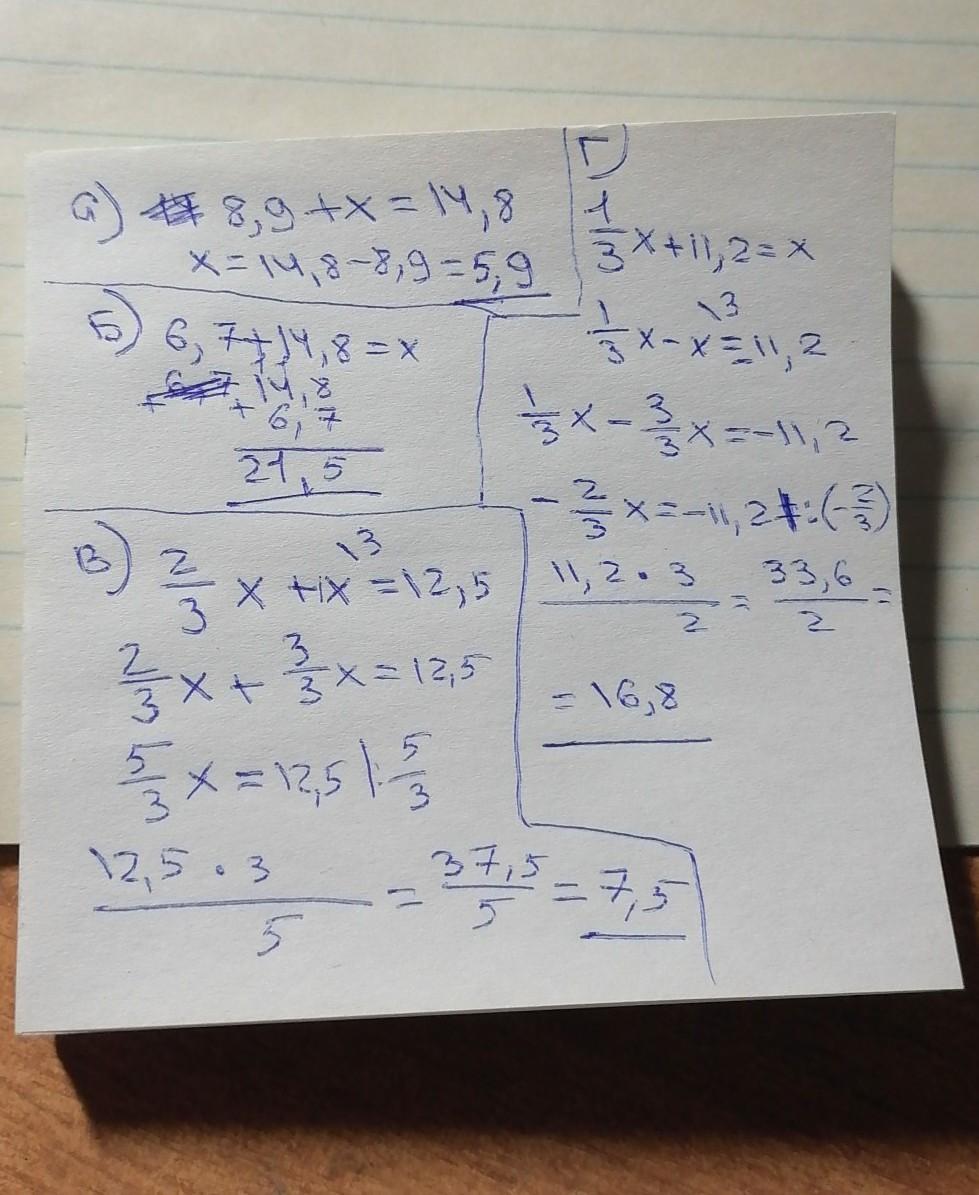 а) 8,9+x=14,8
x=14,8-8,9=5,9
Б) 6,7+14,8=x
14,8
+ 6,7
21,5
В) 2/3 x +1x \3 =12,5
2/3 x + 3/3 x=12,5
5/3 x=12,5 |: 5/3
12,5 · 3 / 5 = 37,5/5 = 7,5
Г)
1/3 x+11,2=x
1/3 x-x \3 =11,2
1/3 x - 3/3 x=-11,2
- 2/3 x=-11,2 |:(-2/3)
11,2 · 3 / 2 = 33,6/2 =
= 16,8